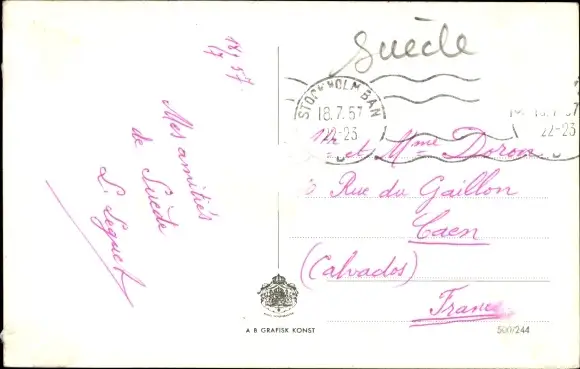 Suède
18/7 57.
Mes amitiés
de Suède
L. Lequet
STOCKHOLM BAN
18.7.57
22-23
18.7.57
22-23
Mr et Mme Doron
Rue du Gaillon
Caen
(Calvados)
France
A B GRAFISK KONST
500/244